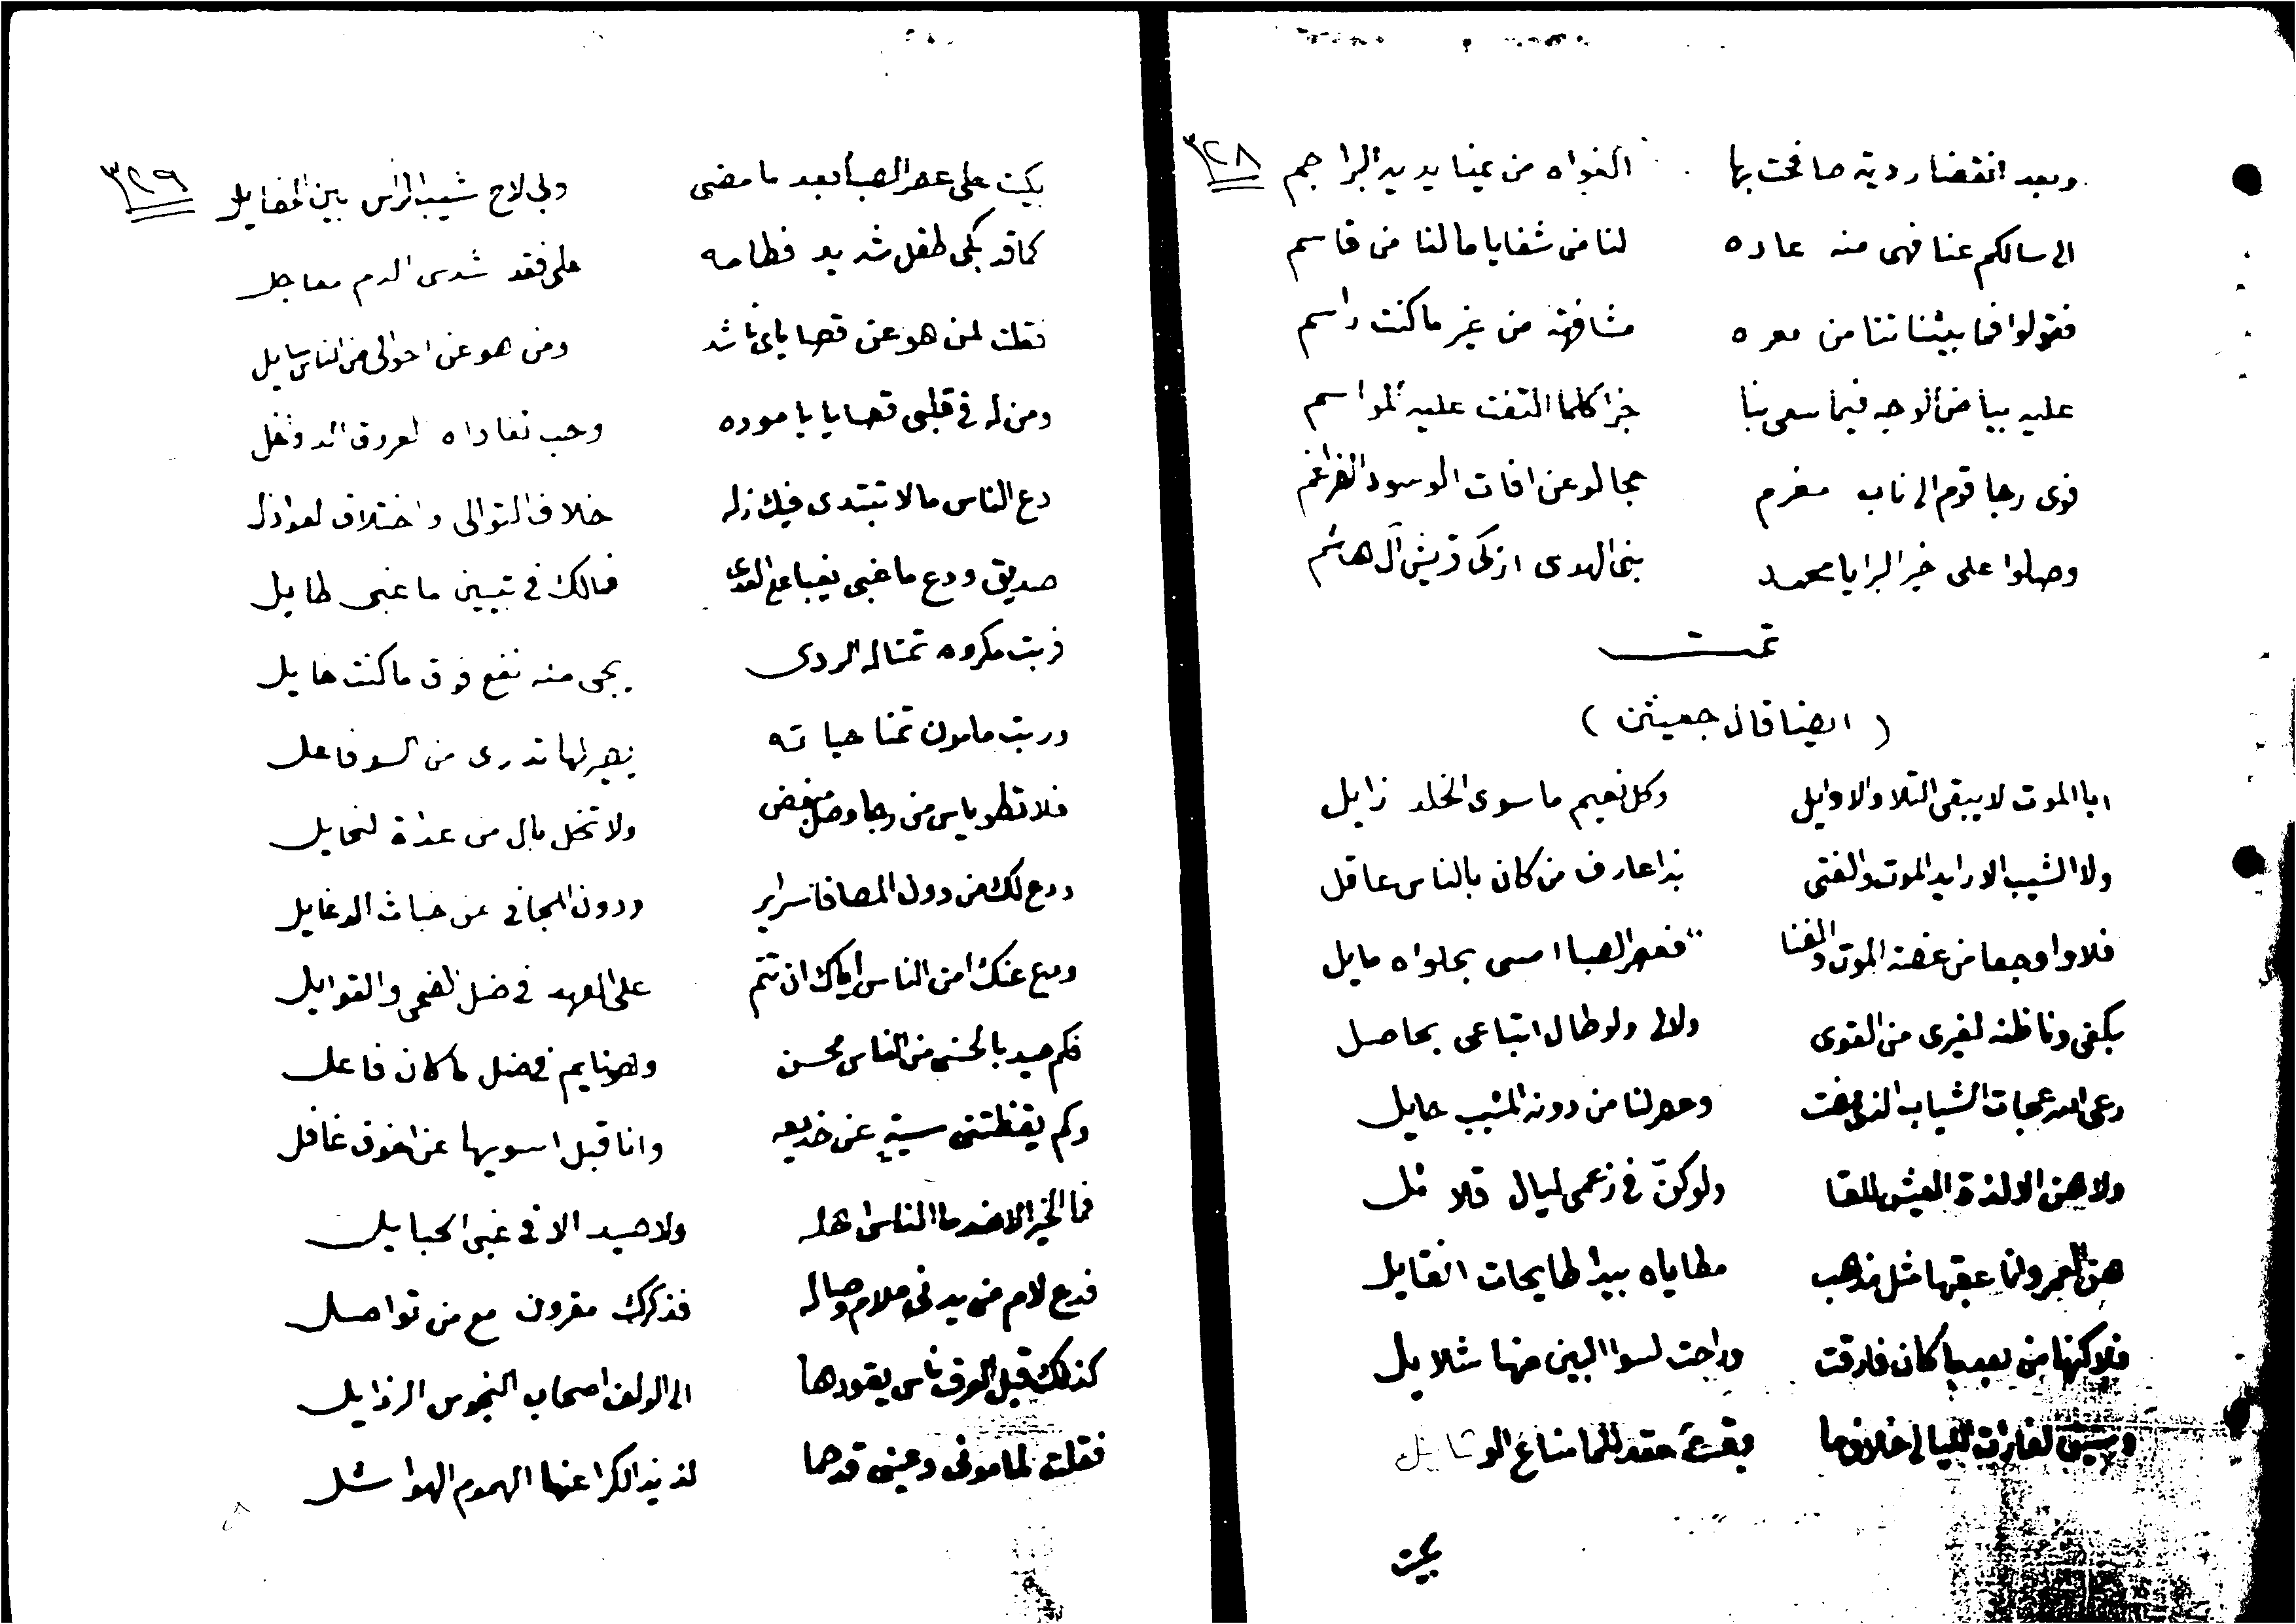 ٣٢٨
وبعد انقضا ردية صافحت بها الغواه من يمنا يديه البراجم
الى سالكم عنا فهى منه عاده لنا من شفايا ما لنا من قاسم
فقولوا فما بيننا تنا من معره مشافهة من غير ما كنت راسم
عليه بياض الوجه فيما سعى بنا جزا كلما التفت عليه المواسم
فوى رجا قوم الى ناب مغرم لجالو عن افات الوسود الضراغم
وصلوا على خير البرايا محمد بنى الهدى ازكى قريش آل هاشم
تمت
( ايضا قال جعيثن )
ايا الموت لا يبقى التلا والاوايل وكل نعيم ما سوى الخلد زايل
ولا الشيب الا رايد الموت والفتى بذا عارف من كان بالناس عاقل
فلا واوجعا من غصة الموت والفنا فعصر الصبا امسى بحلواه مايل
بكفى وناظنه لغيرى من القوى ولالى ولو طال اتباعى بحاصل
رعى الله عجات الشباب الذى مضت وعصر لنا من دونه الشيب حايل
ولا هن الا لذة العيش للقا ولو كنّ فى زعمى ليال قلايل
هن العمر وانما عقبها مثل مذهب مطاياه بيدا طايحات النقايل
فلا كنها من بعد ما كان فارقت وراحت لسوا البين منها شلايل
وسيين لغارات الليالى خلافها بقت عقد للما مناغ الوشايل
بكيت
٣٢٩
بكيت على عصر الصبا بعد ما مضى ولى لاح شيب الراس بين الخصايل
كما قد بكى طفل شديد فطامه على فقد شدى الدم معاجل
فقلت لمن هو عن قصاياى ناشد ومن هو عن احوالى من الناس سايل
ومن له فى قلبى قصايا يا موده وحب تغاداه لعروق الدواخل
دع الناس مالا تبتدى فيك زله خلاف التوالى واختلاف لعواذل
صديق ودع ما غبى يغبا على العدى فمالك فى تبيين ما غبى طايل
فربت مكروه تمثاله الردى يجى منه نفع فوق ما كنت خايل
وربت مامون تمنا حياته يصير لها تدرى من السو فاعل
فلا تطو ياس من رجا وصل مبغض ولا تخل بال من عداة لنحايل
ودع لك من دول المصافا سراير ودون المجافى عن خباث الدغايل
ودع عنك امن الناس اياك ان تنم على العهد فى ضل الضحى والقوايل
فكم صيد بالحسنى من الناس محسن وهو نايم فى ضل ما كان فاعل
وكم يقظتنى سيئة عن خديعه وانا قبل اسويها عن اخوف غافل
فما الخير الا ضد ما الناس اهله ولا صيد الا فى غبى الحبايل
فدع لام من يدنى ملام وصاله فذكرك مقرون مع من تواصل
كذلك قبل العرف ناس يقودها الى الولف اصحاب النجوس الرذايل
فقلت لما مونى وعينى قدها لذيذ الكرا عنها الهموم الهواشل